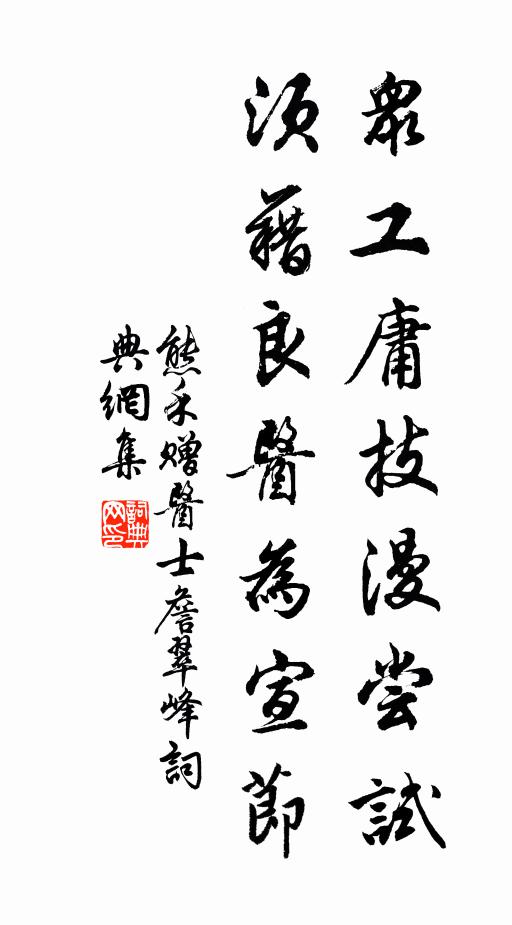 眾工庸技漫尝試
須藉良醫為宣節
熊禾贈醫士詹翠峰詞
典網集
詞典网印